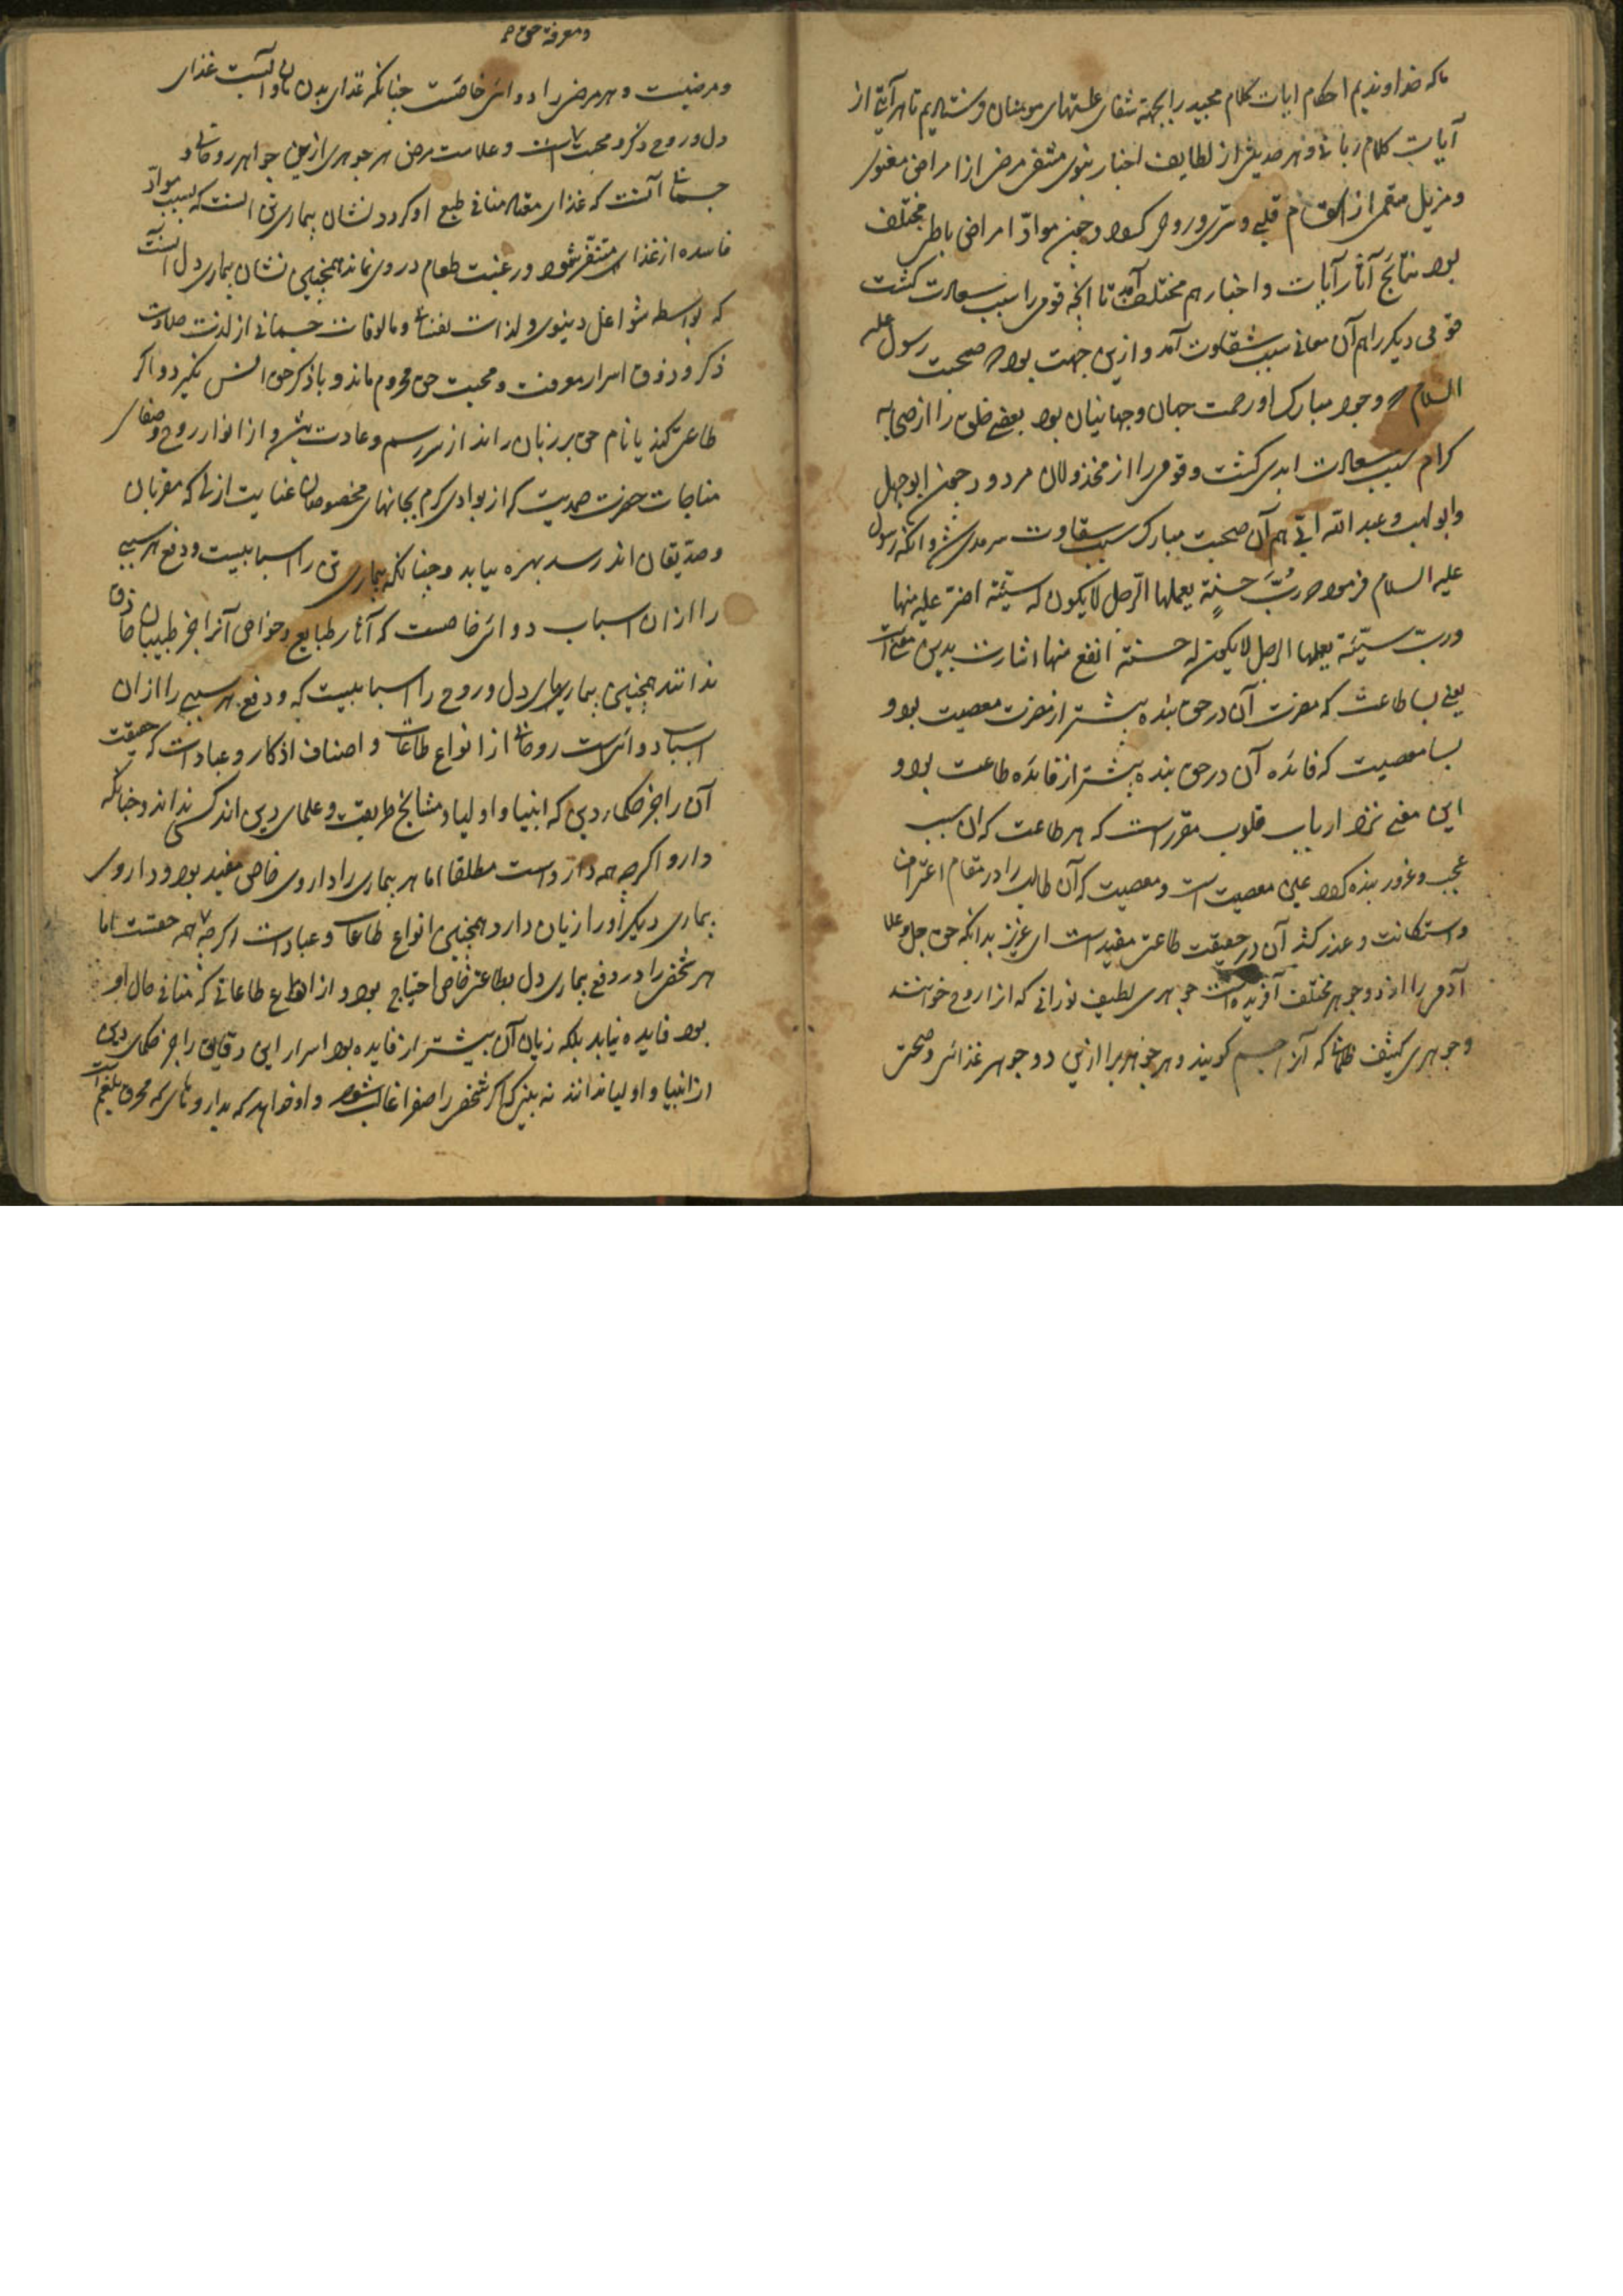 ما که خداوندیم احکام ایات کلام مجید را بجهة شفای علتهای مومنان فرستادیم تا هر آیتی از
آیات کلام ربانی و هر حدیثی از لطایف اخبار نبوی مشفی مرضی از امراض معنوی
و مزیل سقمی از اسقام قلبی و سری و روحی کردد و چون مواد امراض باطن مختلف
بود نتائج آثار آیات و اخبار هم مختلف آمد تا انچه قومی را سبب سعادت کشت
قومی دیکر را هم آن معانی سبب شقاوت آمد و ازین جهت بود که صحبت رسول علیه
السلام که وجود مبارک او رحمت جهان و جهانیان بود بعضی خلق را از صحابه
کرام سبب سعادت ابدی کشت و قومی را از مخذولان مردود چون ابوجهل
و ابولهب و عبد الله ابی هم آن صحبت مبارک سبب شقاوت سرمدی شد و انکه رسول
علیه السلام فرمود که رُبَّ حسنةٍ یعملها الرّجل لا یکون له سیّئة اضرّ علیه منها
و ربّ سیّئة یعملها الرجل لا یکون له حسنة انفع منها اشارت بدین معنی است
یعنی بسا طاعت که مضرت آن در حق بنده بیشتر از مضرت معصیت بود و
بسا معصیت که فائده آن در حق بنده بیشتر از فائده طاعت بود و
این معنی نزد ارباب قلوب مقرر است که هر طاعت که ان سبب
عجب و غرور بنده کردد عین معصیت است و معصیت که آن طالب را در مقام اعتراف
و استکانت و عذر کشد آن در حقیقت طاعتی مفید است ای عزیز بدانکه حق جل و علا
آدمی را از دو جوهر مختلف آفریده است جوهری لطیف نورانی که انرا روح خوانند
و جوهری کثیف ظلمانی که آنرا جسم کویند و هر جوهریرا ازین دو جوهر غذائی و صحتی
و معرفة حق
و مرضیست و هر مرضی را دوائی خاصّست چنانکه غذای بدن نان و آبست غذای
دل و روح ذکر و محبت است و علامت مرض هر جوهری ازین جواهر روحانی و
جسمانی آنست که غذای معتاد منافی طبع او کردد نشان بیماری تن انست که بسبب موادّ
فاسده از غذا متنفّر شود و رغبت طعام در وی نماند همچنین نشان بیماری دل انست
که بواسطه شواغل دینوی و لذات نفسانی و مالوفات جسمانی از لذت حلاوت
ذکر و ذوق اسرار معرفت و محبت حق محروم ماند و با ذکر حق انس نکیرد و اکر
طاعتی کند یا نام حق بر زبان راند از سر رسم و عادت باشد و از انوار روح و صفای
مناجات حضرت صمدیت که از بوادی کرم بجانهای مخصوصان عنایت ازلی که مقربان
و صدیقان اند رسد بهره نیابد و چنانکه بیماری تن را اسبابیست و دفع هر سببی
را ازان اسباب دوائی خاصست که آثار طبایع و خواص آنرا جز طبیبان حاذق
ندانند همچنین بیماریهای دل و روح را اسبابیست که و دفع هر سببی را ازان
اسباب دوائی است روحانی از انواع طاعات و اصناف اذکار و عبادات که حقیقت
آن را جز حکماء دین که انبیا و اولیا و مشایخ طریقت و علمای دین اند کسی نداند و چنانکه
دارو اکرچه همه داروست مطلقا اما هر بیماری را داروی خاص مفید بود و داروی
بیماری دیکر اورا زیان دارد همچنین انواع طاعات و عبادات اکرچه همه حقست اما
هر شخص را در دفع بیماری دل بطاعتی خاص احتیاج بود و از انواع طاعاتی که منافی حال او
بود فایده نیابد بلکه زیان آن بیشتر از فایده بود اسرار این دقایق را جز حکمای دین
از انبیا و اولیا ندانند نه بینی که اکر شخصی را صفرا غالب شود و او خواهد که بداروهای که محرق بلغم است